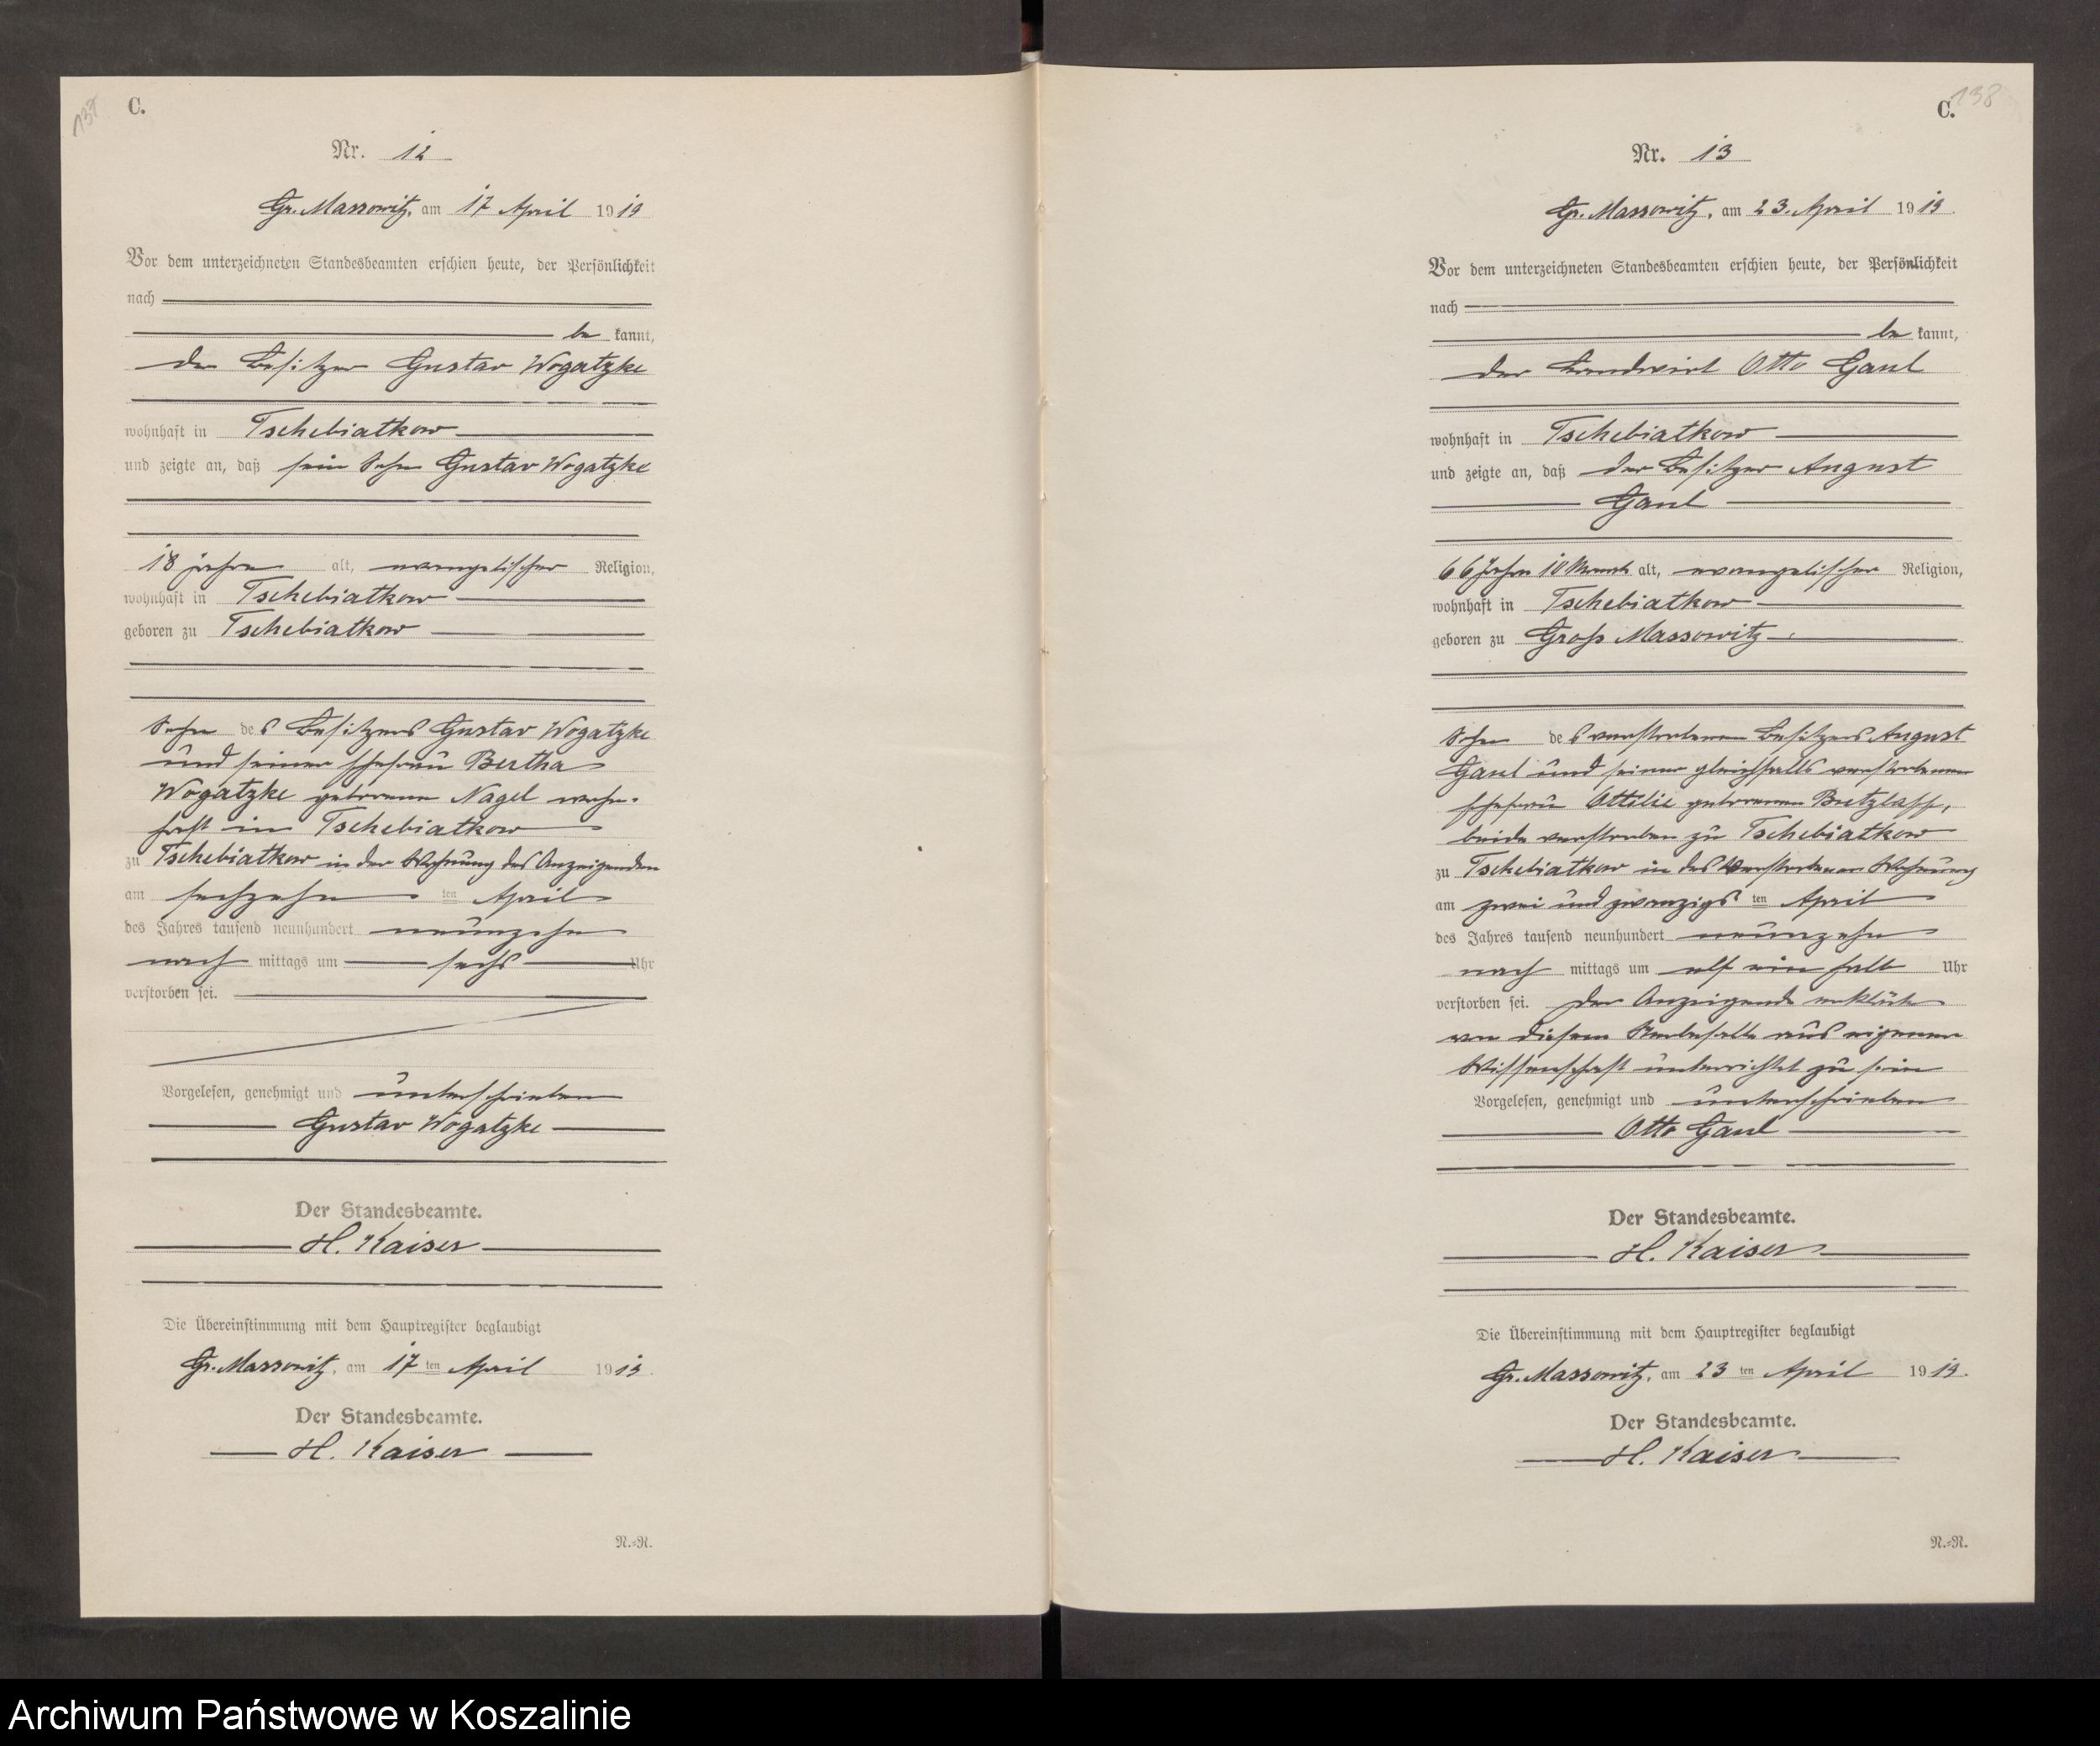 137
C.
Nr. 12
Gr. Massowitz, am 17 April 1919
Vor dem unterzeichneten Standesbeamten erschien heute, der Persönlichkeit
nach
be kannt,
der Besitzer Gustav Wogatzke
wohnhaft in Tschebiatkow
und zeigte an, daß sein Sohn Gustav Wogatzke
18 Jahre alt, evangelischer Religion,
wohnhaft in Tschebiatkow
geboren zu Tschebiatkow
Sohn des Besitzers Gustav Wogatzke
und seiner Ehefrau Bertha
Wogatzke geborene Nagel wohn-
haft in Tschebiatkow
zu Tschebiatkow in der Wohnung des Anzeigenden
am sechzehn ten April
des Jahres tausend neunhundert neunzehn
nach mittags um sechs Uhr
verstorben sei.
Vorgelesen, genehmigt und unterschrieben
Gustav Wogatzke
Der Standesbeamte.
H. Kaiser
Die Übereinstimmung mit dem Hauptregister beglaubigt
Gr. Massowitz, am 17 ten April 1919.
Der Standesbeamte.
H. Kaiser
N.=R.
138
C.
Nr. 13
Gr. Massowitz, am 23. April 1919.
Vor dem unterzeichneten Standesbeamten erschien heute, der Persönlichkeit
nach
be kannt,
der Landwirt Otto Gaul
wohnhaft in Tschebiatkow
und zeigte an, daß der Besitzer August
Gaul
66 Jahre 10 Monate alt, evangelischer Religion,
wohnhaft in Tschebiatkow
geboren zu Groß Massowitz
Sohn des verstorbenen Besitzers August
Gaul und seiner gleichfalls verstorbenen
Ehefrau Ottilie geborenen Butzlaff,
beide verstorben zu Tschebiatkow
zu Tschebiatkow in des Verstorbenen Wohnung
am zwei und zwanzigs ten April
des Jahres tausend neunhundert neunzehn
nach mittags um elf ein halb Uhr
verstorben sei. Der Anzeigende erklärte
von diesem Sterbefalle aus eigener
Wissenschaft unterrichtet zu sein
Vorgelesen, genehmigt und unterschrieben
Otto Gaul
Der Standesbeamte.
H. Kaiser
Die Übereinstimmung mit dem Hauptregister beglaubigt
Gr. Massowitz, am 23 ten April 1919.
Der Standesbeamte.
H. Kaiser
N.=R.
Archiwum Państwowe w Koszalinie